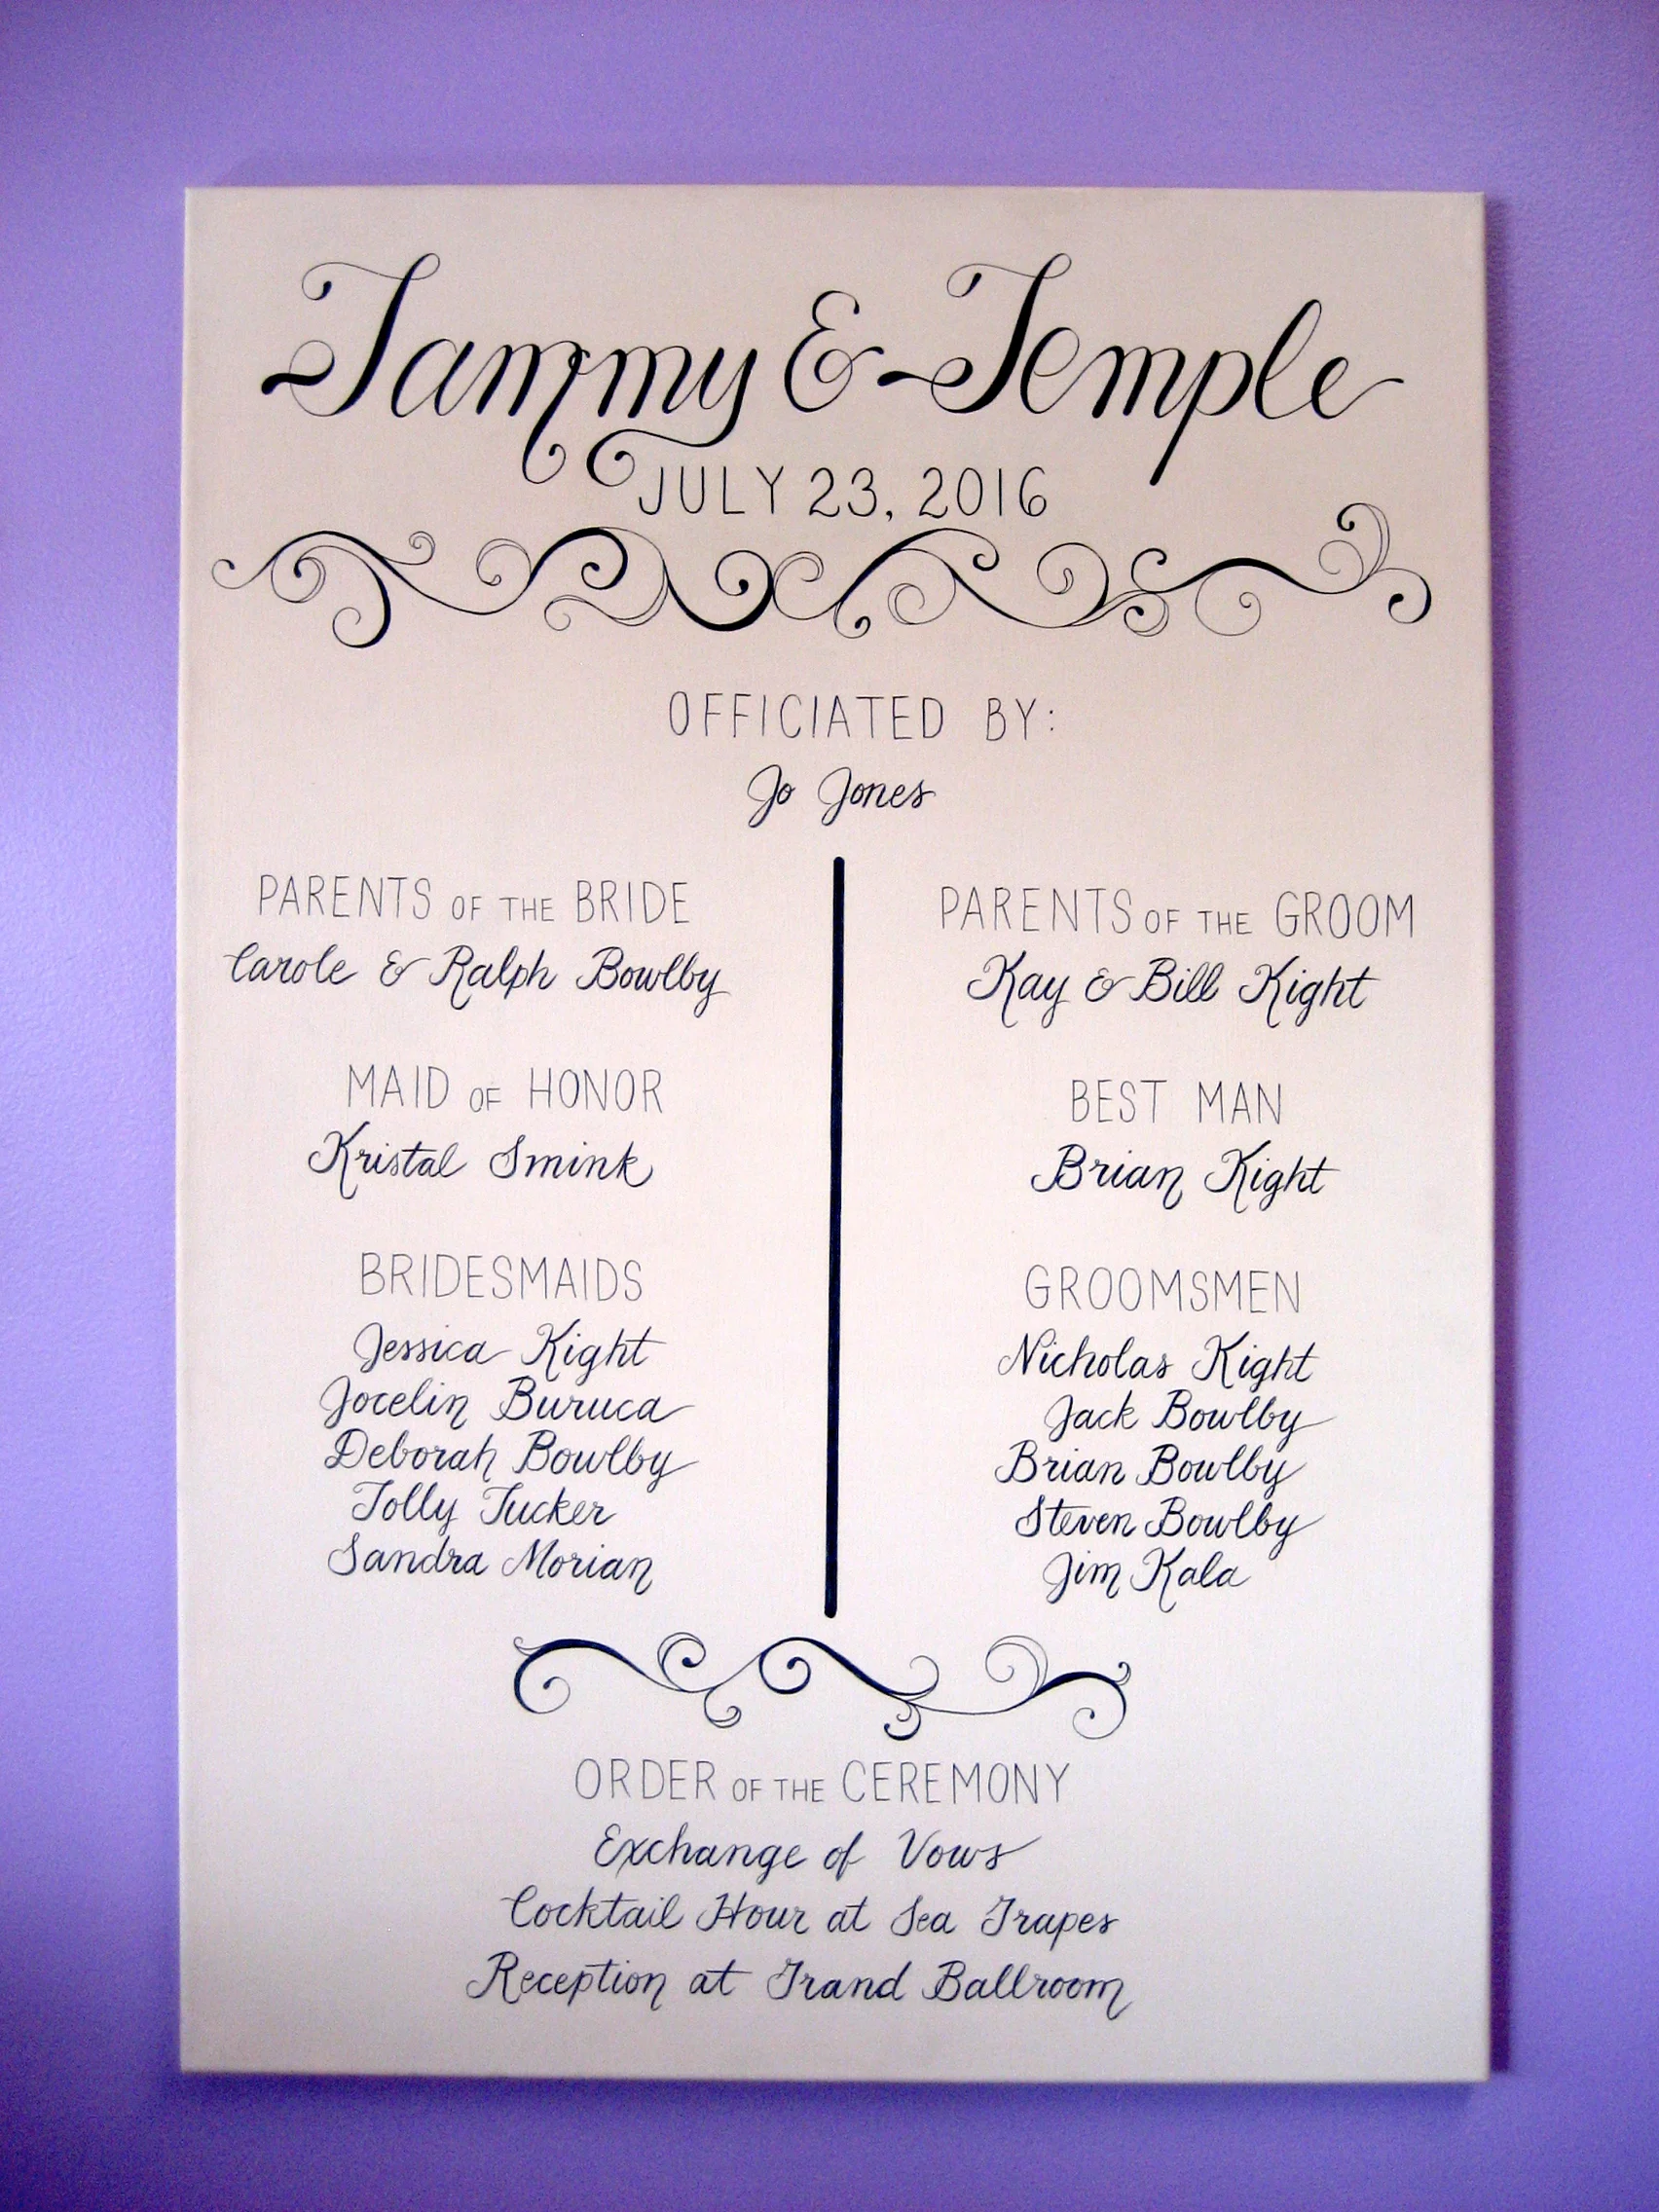 Tammy & Temple
JULY 23, 2016
OFFICIATED BY:
Jo Jones
PARENTS OF THE BRIDE
Carole & Ralph Bowlby
MAID OF HONOR
Kristal Smink
BRIDESMAIDS
Jessica Kight
Jocelin Buruca
Deborah Bowlby
Jolly Tucker
Sandra Morian
PARENTS OF THE GROOM
Kay & Bill Kight
BEST MAN
Brian Kight
GROOMSMEN
Nicholas Kight
Jack Bowlby
Brian Bowlby
Steven Bowlby
Jim Kala
ORDER OF THE CEREMONY
Exchange of Vows
Cocktail Hour at Sea Grapes
Reception at Grand Ballroom